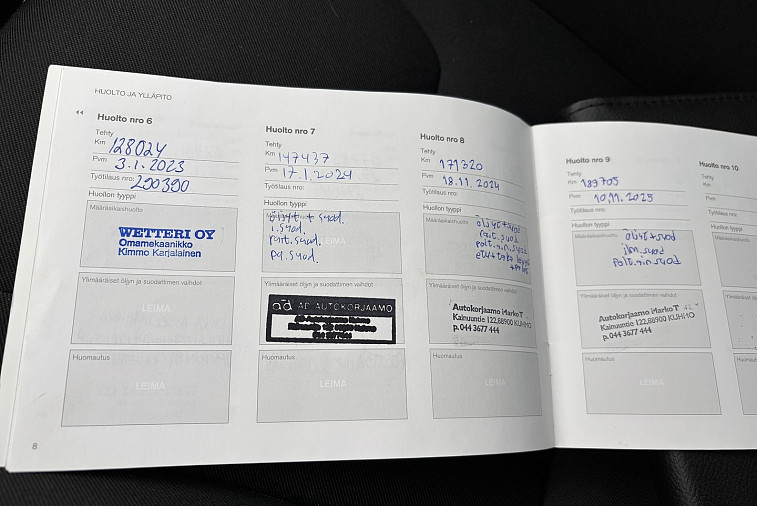 HUOLTO JA YLLÄPITO
Huolto nro 6
Tehty
Km 128024
Pvm 3.1.2023
Työtilaus nro: 200390
Huollon tyyppi
Määräaikaishuolto
WETTERI OY
Omamekaanikko
Kimmo Karjalainen
Ylimääräiset öljyn ja suodattimen vaihdot
LEIMA
Huomautus
LEIMA
8
Huolto nro 7
Tehty
Km 147437
Pvm 17.1.2024
Työtilaus nro:
Huollon tyyppi
öljyt + suod.
i.suod.
rait.suod.
pa.suod.
LEIMA
Ylimääräiset öljyn ja suodattimen vaihdot
ad AD AUTOKORJAAMO
Huomautus
LEIMA
Huolto nro 8
Tehty
Km 171320
Pvm 18.11.2024
Työtilaus nro:
Huollon tyyppi
Määräaikaishuolto
öljyt+suod
rait.suod
polt.ain.suod
etu+taka
Ylimääräiset öljyn ja suodattimen vaihdot
Autokorjaamo Marko T
Kainuuntie 122,88900 KUHMO
p.044 3677 444
Huomautus
LEIMA
Huolto nro 9
Tehty
Km 189705
Pvm 10.11.2025
Työtilaus nro:
Huollon tyyppi
Määräaikaishuolto
öljyt+suod
ilm.suod
polt.ain.suod
Ylimääräiset öljyn ja suodattimen vaihdot
Autokorjaamo Marko T
Kainuuntie 122,88900 KUHMO
p.044 3677 444
Huomautus
LEIMA
Huolto nro 10
Tehty
Km
Pvm
Työtilaus nro:
Huollon tyyppi